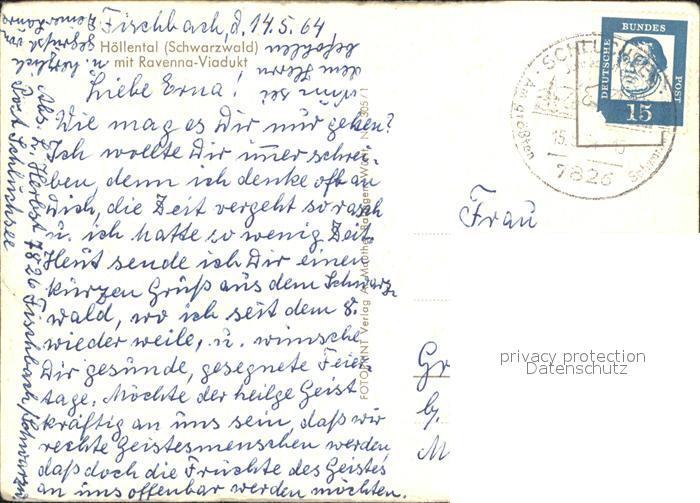 Fischbach, d. 14.5.64
Höllental (Schwarzwald)
mit Ravenna-Viadukt
Liebe Erna!
Wie mag es Dir nur gehen?
Ich wollte Dir immer schrei-
ben, denn ich denke oft an
Dich, die Zeit vergeht so rasch
u. ich hatte so wenig Zeit.
Heut sende ich Dir einen
kurzen Gruß aus dem Schwarz-
wald, wo ich seit dem 8.
wieder weile, u. wünsche
Dir gesunde, gesegnete Feier-
tage. Möchte der heilge Geist
kräftig an uns sein, daß wir
rechte Geistesmenschen werden,
daß doch die Früchte des Geistes
an uns offenbar werden möchten.
Nun sei
dem Herrn
befohlen
u. herzlich
gegrüßt von
Deiner
Abs. L. Herbst 7826 Fischbach/Schwarzw.
Post Schluchsee
FOTOPRINT Verlag
DEUTSCHE BUNDES POST
15
SCHLUCHSEE
Am größten
7826
Frau
Gr
b.
M
privacy protection
Datenschutz